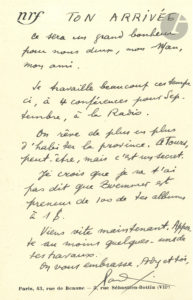 nrf TON ARRIVÉE
ce sera un grand bonheur
pour nous deux, mon Man,
mon ami.
Je travaille beaucoup ces temps
ci, à 4 conférences pour Sep-
tembre, à la Radio.
On rêve de plus en plus
d'habiter la province. A Tours,
peut-être, mais c'est un secret.
Je crois que je ne t'ai
pas dit que Evenner est
preneur de 100 de tes albums
à 1 £.
Viens vite maintenant. Appor
te au moins quelques-uns de
tes travaux.
On vous embrasse, Aby et toi,
Paris, 43, rue de Beaune — 5, rue Sébastien-Bottin (VIIe)